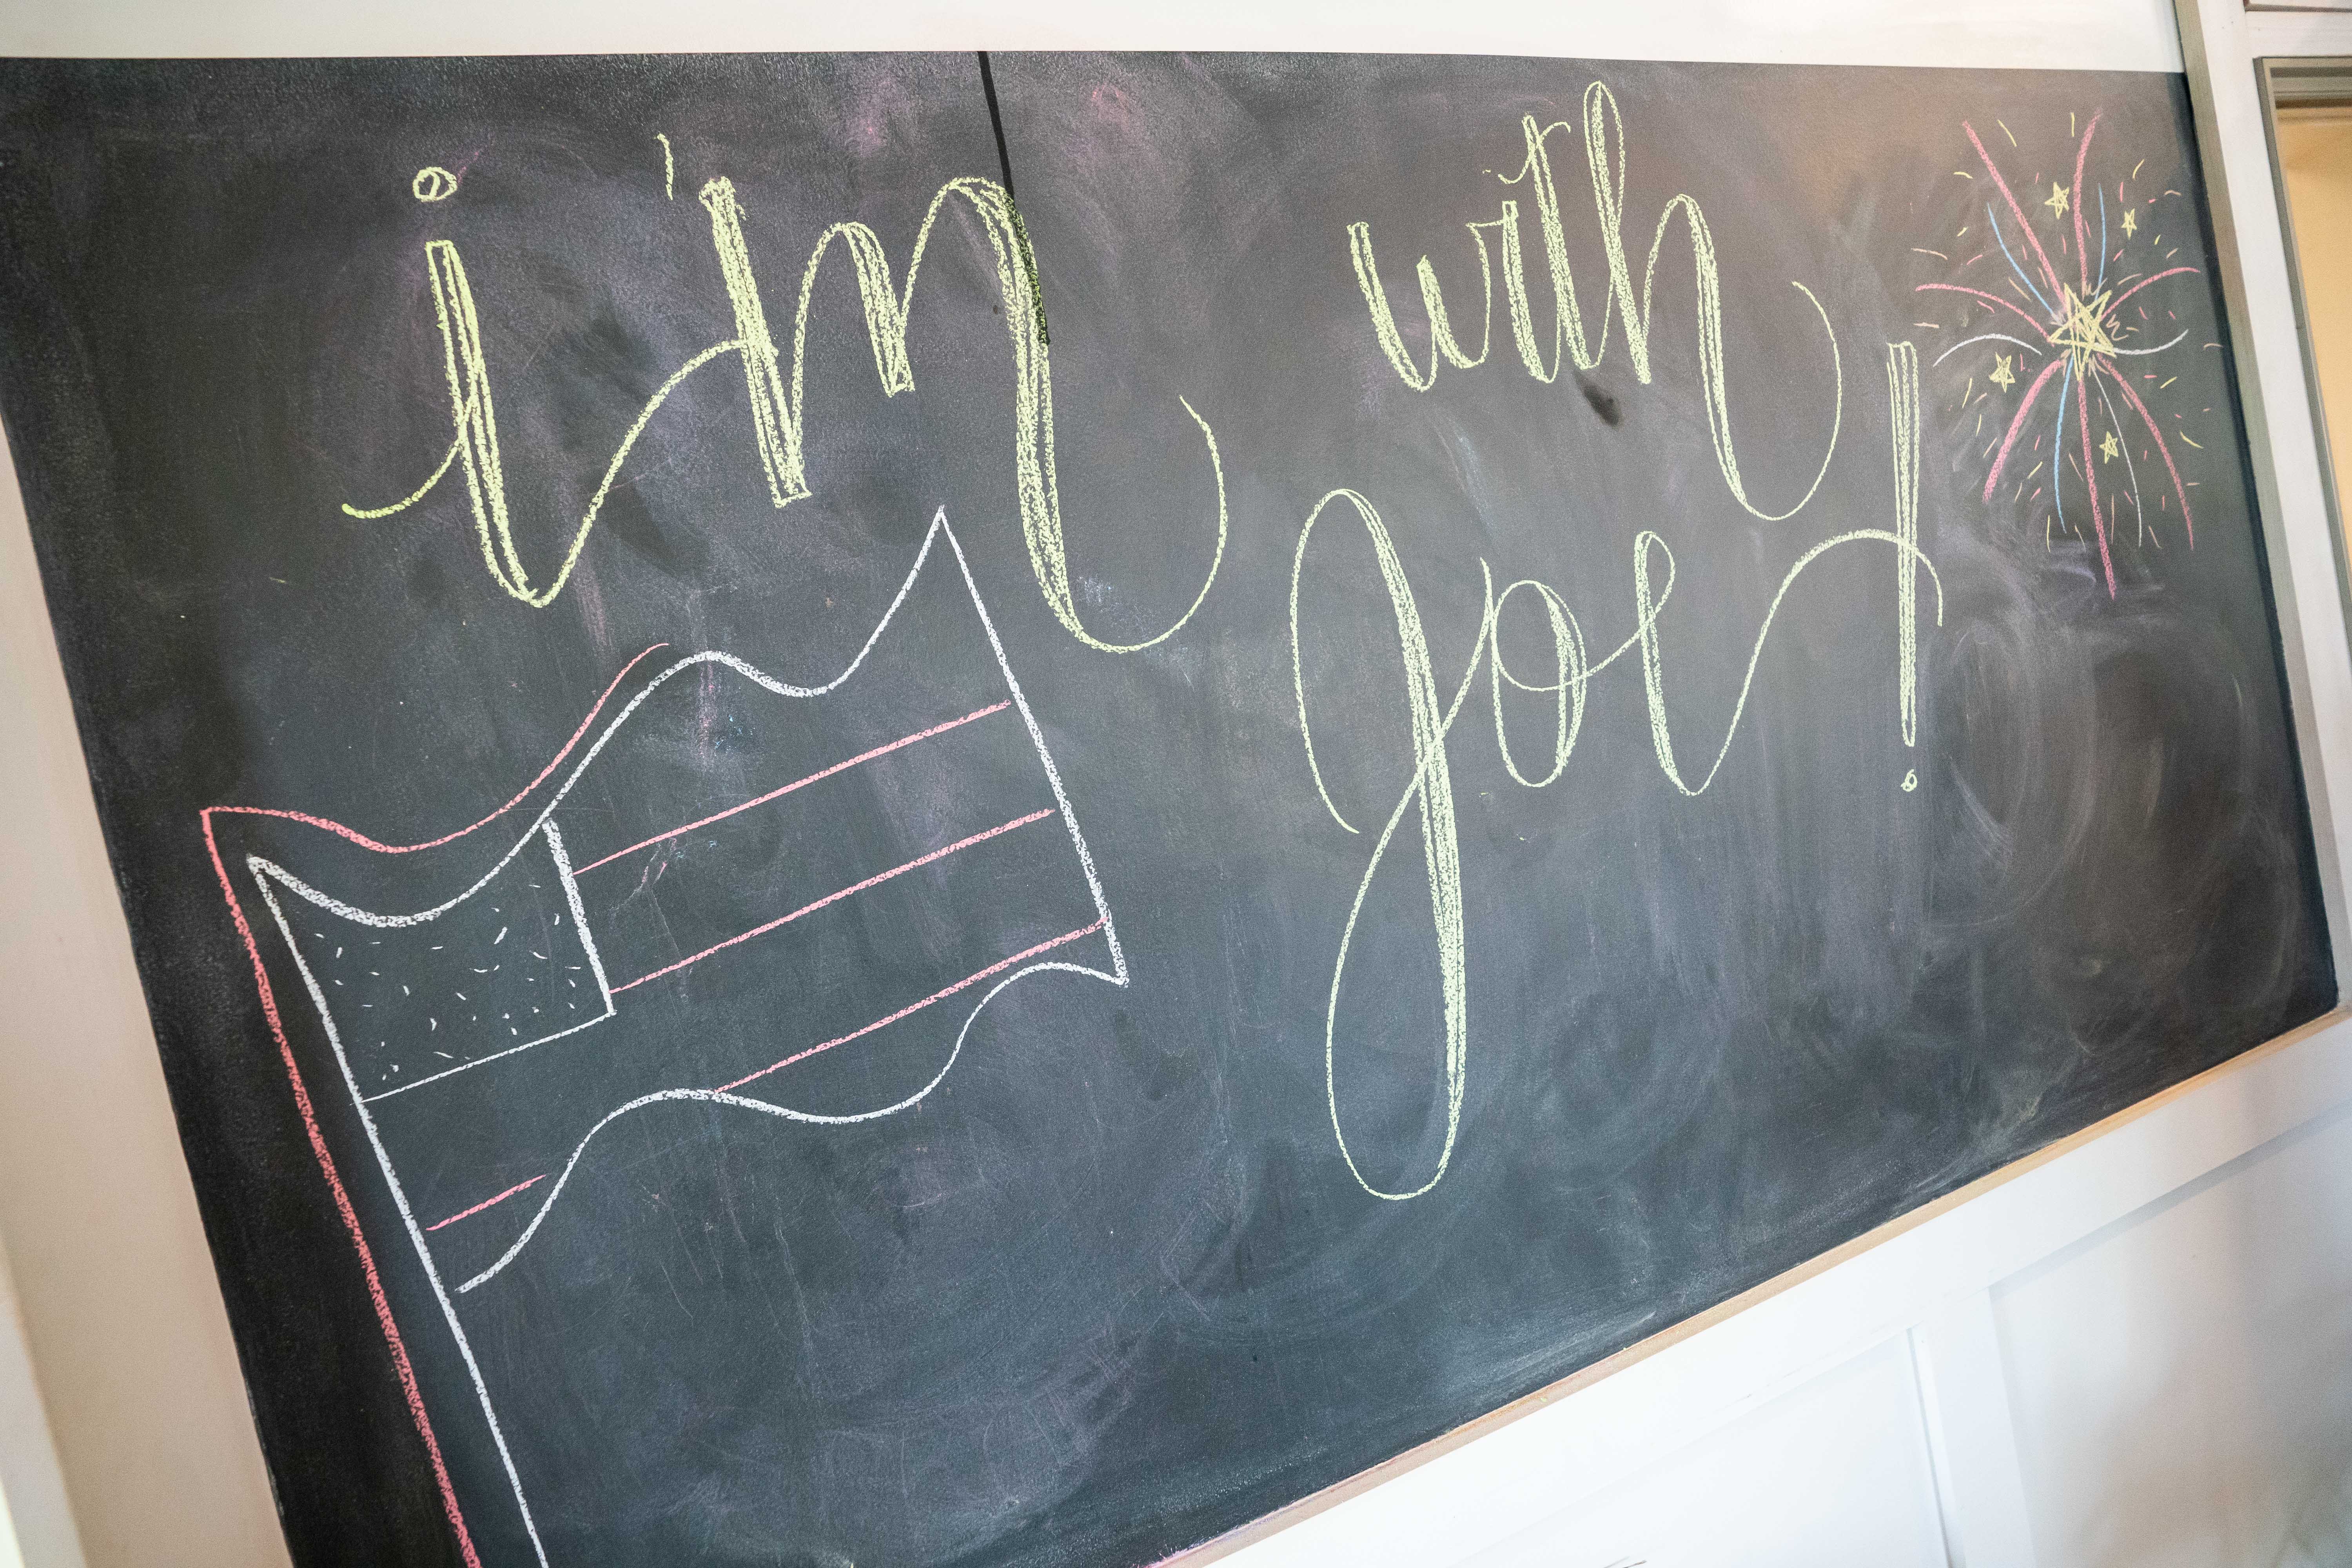 i'm with
joe!